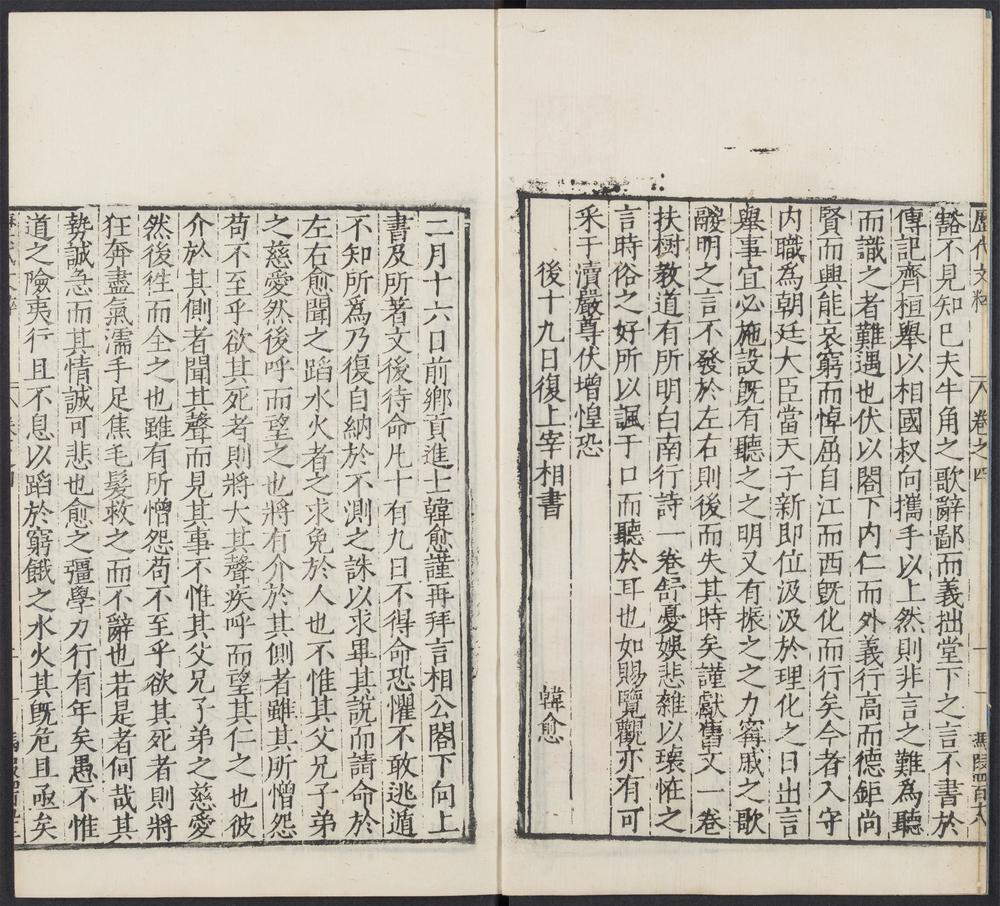 歷代文粹 八卷之四
豁不見知已夫牛角之歌辭鄙而義拙堂下之言不書於
傳記齊桓舉以相國叔向攜手以上然則非言之難為聽
而識之者難遇也伏以閤下内仁而外義行高而德鉅尚
賢而興能哀窮而悼屈自江而西旣化而行矣今者入守
内職為朝廷大臣當天子新即位汲汲於理化之日出言
舉事宜必施設旣有聽之之明又有振之之力甯戚之歌
鬷明之言不發於左右則後而失其時矣謹獻舊文一卷
扶樹教道有所明白南行詩一卷舒憂娛悲雜以瓌怪之
言時俗之好所以諷于口而聽於耳也如賜覽觀亦有可
采干瀆嚴尊伏增惶恐
後十九日復上宰相書 韓愈
二月十六日前鄉貢進士韓愈謹再拜言相公閤下向上
書及所著文後待命凡十有九日不得命恐懼不敢逃遁
不知所為乃復自納於不測之誅以求畢其說而請命於
左右愈聞之蹈水火者之求免於人也不惟其父兄子弟
之慈愛然後呼而望之也將有介於其側者雖其所憎怨
苟不至乎欲其死者則將大其聲疾呼而望其仁之也彼
介於其側者聞其聲而見其事不惟其父兄子弟之慈愛
然後徃而全之也雖有所憎怨苟不至乎欲其死者則將
狂奔盡氣濡手足焦毛髮救之而不辭也若是者何哉其
勢誠急而其情誠可悲也愈之彊學力行有年矣愚不惟
道之險夷行且不息以蹈於窮餓之水火其旣危且亟矣